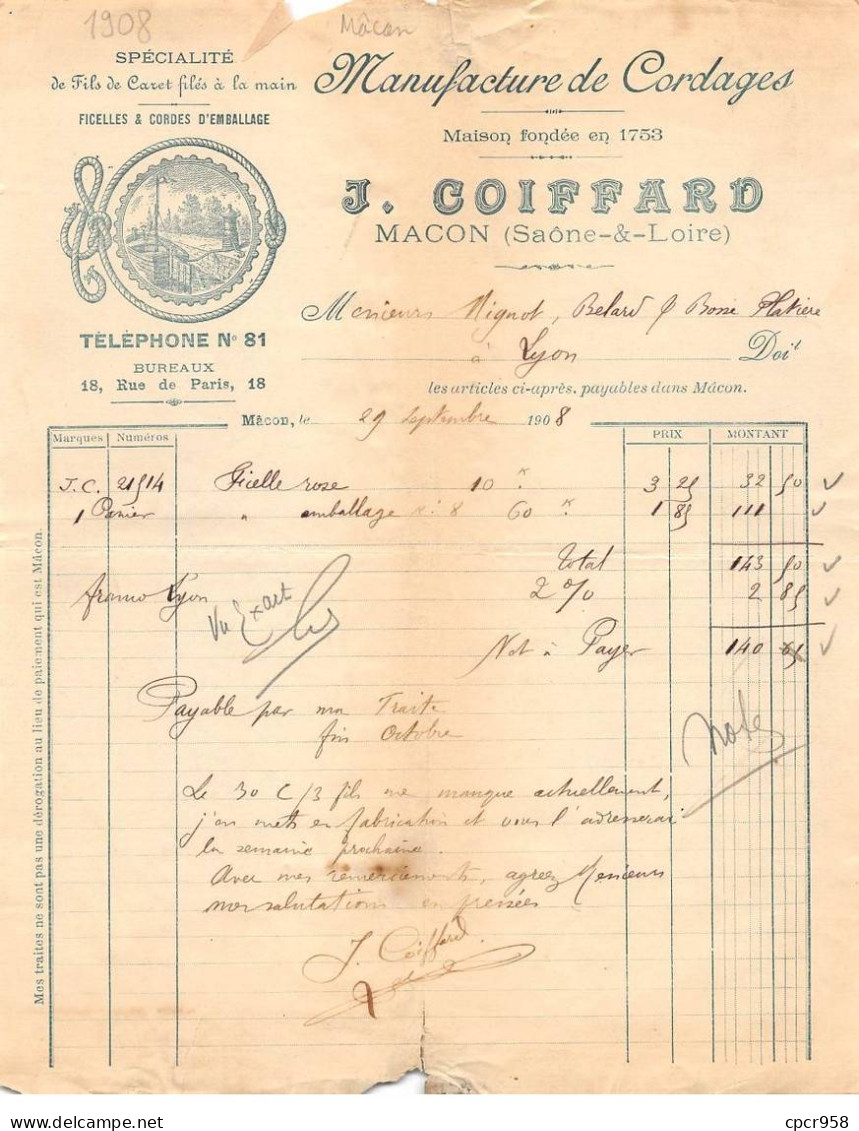 1908
Mâcon
SPÉCIALITÉ
de Fils de Caret filés à la main
FICELLES & CORDES D'EMBALLAGE
TÉLÉPHONE No 81
BUREAUX
18, Rue de Paris, 18
Manufacture de Cordages
Maison fondée en 1753
J. COIFFARD
MACON (Saône-&-Loire)
Messieurs Mignot, Belard & Bosse Platière
à Lyon Doit
les articles ci-après, payables dans Mâcon.
Mâcon, le 29 Septembre 1908
Marques Numéros PRIX MONTANT
J.C. 21514 Ficelle rose 10 k. 3 25 32 50
1 Panier " emballage 8 60 k. 1 85 111
Total 143 50
franco Lyon 2 % 2 85
Vu Exact
Net à Payer 140 65
Payable par ma Traite
fin Octobre
Note
Le 30 C/3 fils me manque actuellement,
j'en mets en fabrication et vous l'adresserai
la semaine prochaine.
Avec mes remerciements, agréez Messieurs
mes salutations empressées
J. Coiffard
Mes traites ne sont pas une dérogation au lieu de paiement qui est Mâcon.
cpcr958